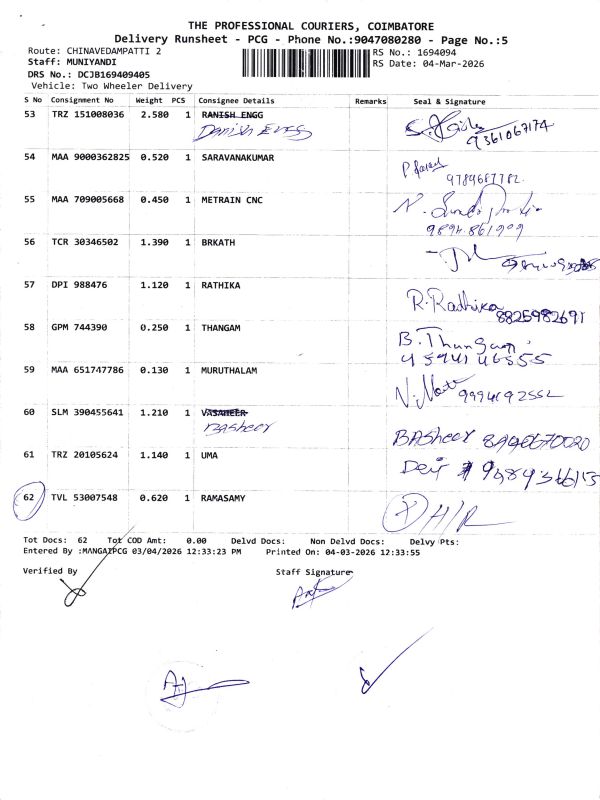 THE PROFESSIONAL COURIERS, COIMBATORE
Delivery Runsheet - PCG - Phone No.:9047080280 - Page No.:5
Route: CHINAVEDAMPATTI 2 RS No.: 1694094
Staff: MUNIYANDI RS Date: 04-Mar-2026
DRS No.: DCJB169409405
Vehicle: Two Wheeler Delivery
S No Consignment No Weight PCS Consignee Details Remarks Seal & Signature
53 TRZ 151008036 2.580 1 RANISH ENGG
Danish Engg 9361067174
54 MAA 9000362825 0.520 1 SARAVANAKUMAR
9789687782
55 MAA 709005668 0.450 1 METRAIN CNC
9894861909
56 TCR 30346502 1.390 1 BRKATH
57 DPI 988476 1.120 1 RATHIKA
R.Radhika 8825982691
58 GPM 744390 0.250 1 THANGAM
B.Thangam
59 MAA 651747786 0.130 1 MURUTHALAM
60 SLM 390455641 1.210 1 VASAHEER
Basheer
BASheer
61 TRZ 20105624 1.140 1 UMA
62 TVL 53007548 0.620 1 RAMASAMY
H/R
Tot Docs: 62 Tot COD Amt: 0.00 Delvd Docs: Non Delvd Docs: Delvy Pts:
Entered By :MANGAIPCG 03/04/2026 12:33:23 PM Printed On: 04-03-2026 12:33:55
Verified By Staff Signature